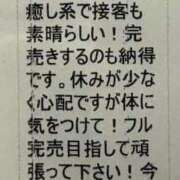 癒し系で接客も
素晴らしい！完
売きするのも納得
です。休みが少な
く心配ですが体に
気をつけて！フル
完売目指して頑
張って下さい！今